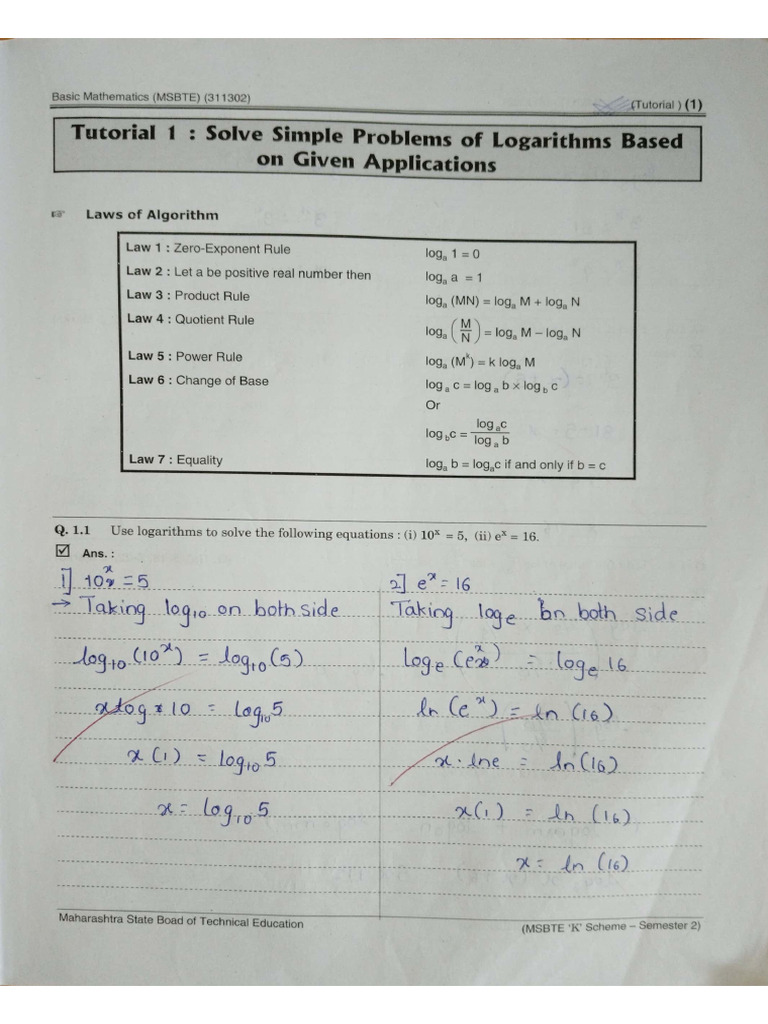 Basic Mathematics (MSBTE) (311302)
(Tutorial ) (1)
Tutorial 1 : Solve Simple Problems of Logarithms Based
on Given Applications
☞ Laws of Algorithm
Law 1 : Zero-Exponent Rule logₐ 1 = 0
Law 2 : Let a be positive real number then logₐ a = 1
Law 3 : Product Rule logₐ (MN) = logₐ M + logₐ N
Law 4 : Quotient Rule logₐ (M/N) = logₐ M – logₐ N
Law 5 : Power Rule logₐ (Mᵏ) = k logₐ M
Law 6 : Change of Base log ₐ c = log ₐ b × log _b c
Or
log _b c = log ₐc / log ₐ b
Law 7 : Equality logₐ b = logₐc if and only if b = c
Q. 1.1 Use logarithms to solve the following equations : (i) 10ˣ = 5, (ii) eˣ = 16.
☑ Ans. :
1] 10ˣ = 5
→ Taking log₁₀ on both side
log₁₀ (10ˣ) = log₁₀ (5)
x log 10 = log₁₀ 5
x (1) = log₁₀ 5
x = log₁₀ 5
2] eˣ = 16
Taking logₑ on both side
logₑ (eˣ) = logₑ 16
ln (eˣ) = ln (16)
x · lne = ln (16)
x(1) = ln (16)
x = ln (16)
Maharashtra State Boad of Technical Education
(MSBTE 'K' Scheme – Semester 2)